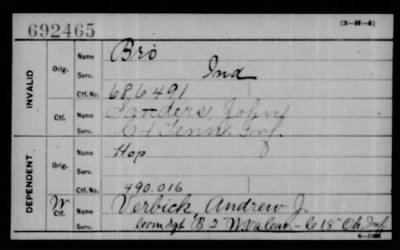 692465
(3-H-4)
INVALID
Orig.
Name
Bro
Serv.
Ind
Ctf. No.
686491
Ctf.
Name
Sanders, John
Serv.
C 1 Tenn. Inf.
DEPENDENT
Orig.
Name
Hop
Serv.
Ctf. No.
490.016
W
Ctf.
Name
Verbick, Andrew J.
Serv.
B 2 18" O Inf